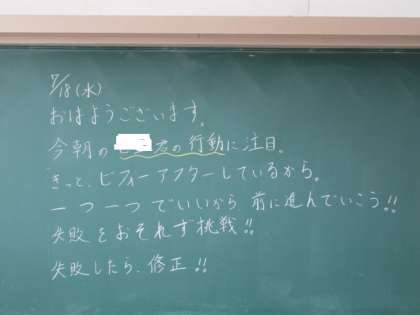 7/18(水)
おはようございます。
今朝の 君の行動に注目。
きっと、ビフォーアフターしているから。
一つ一つでいいから 前に進んでいこう!!
失敗をおそれず挑戦!!
失敗したら、修正!!